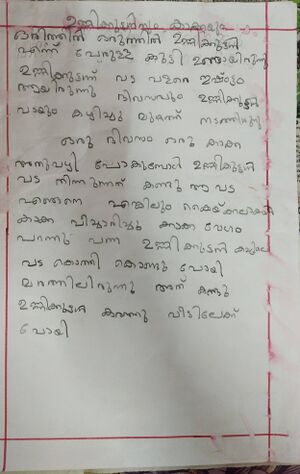 ഉണ്ണിക്കുട്ടനും കാക്കയും
ഒരിടത്ത് ഒരുന്നിൽ ഉണ്ണിക്കുട്ടൻ
എന്ന് പേരുള്ള കുട്ടി ഉണ്ടായിരുന്നു
ഉണ്ണിക്കുട്ടന് വട വളരെ ഇഷ്ടം
ആയിരുന്നു ദിവസവും ഉണ്ണിക്കുട്ടൻ
വടയും കഴിച്ചു മുറ്റത്ത് നടന്നിരുന്നു
ഒരു ദിവസം ഒരു കാക്ക
അതുവഴി പോകുമ്പോൾ ഉണ്ണിക്കുട്ടൻ
വട തിന്നുന്നത് കണ്ടു ആ വട
എങ്ങനെ എങ്കിലും കൈക്കലാക്കാൻ
കാക്ക വിചാരിച്ചു കാക്ക വേഗം
പറന്നു വന്ന ഉണ്ണിക്കുട്ടൻ
വട കൊത്തി കൊണ്ടു പോയി
മരത്തിലിരുന്നു അത് കണ്ടു
ഉണ്ണിക്കുട്ടൻ കരഞ്ഞു വീടിലേക്ക്
പോയി